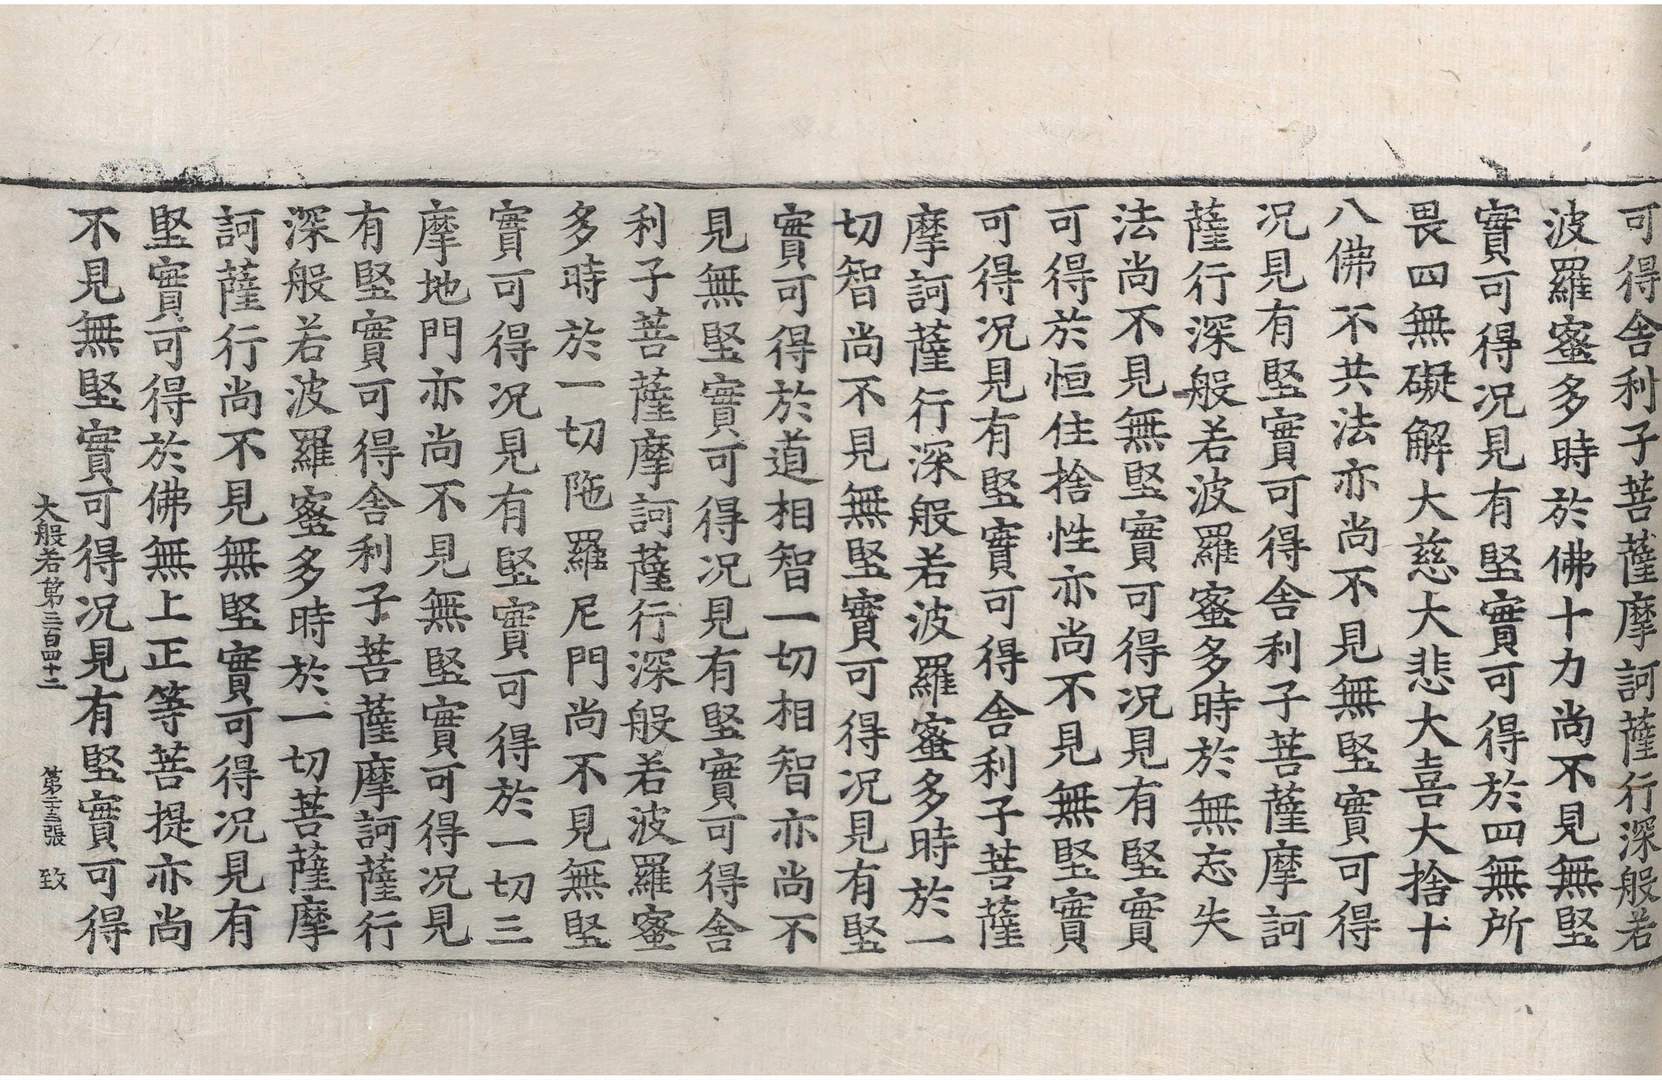 可得舍利子菩薩摩訶薩行深般若
波羅蜜多時於佛十力尚不見無堅
實可得况見有堅實可得於四無所
畏四無礙解大慈大悲大喜大捨十
八佛不共法亦尚不見無堅實可得
况見有堅實可得舍利子菩薩摩訶
薩行深般若波羅蜜多時於無忘失
法尚不見無堅實可得况見有堅實
可得於恒住捨性亦尚不見無堅實
可得况見有堅實可得舍利子菩薩
摩訶薩行深般若波羅蜜多時於一
切智尚不見無堅實可得况見有堅
實可得於道相智一切相智亦尚不
見無堅實可得况見有堅實可得舍
利子菩薩摩訶薩行深般若波羅蜜
多時於一切陁羅尼門尚不見無堅
實可得况見有堅實可得於一切三
摩地門亦尚不見無堅實可得况見
有堅實可得舍利子菩薩摩訶薩行
深般若波羅蜜多時於一切菩薩摩
訶薩行尚不見無堅實可得况見有
堅實可得於佛無上正等菩提亦尚
不見無堅實可得况見有堅實可得
大般若第三百四十二 第二十三張 致